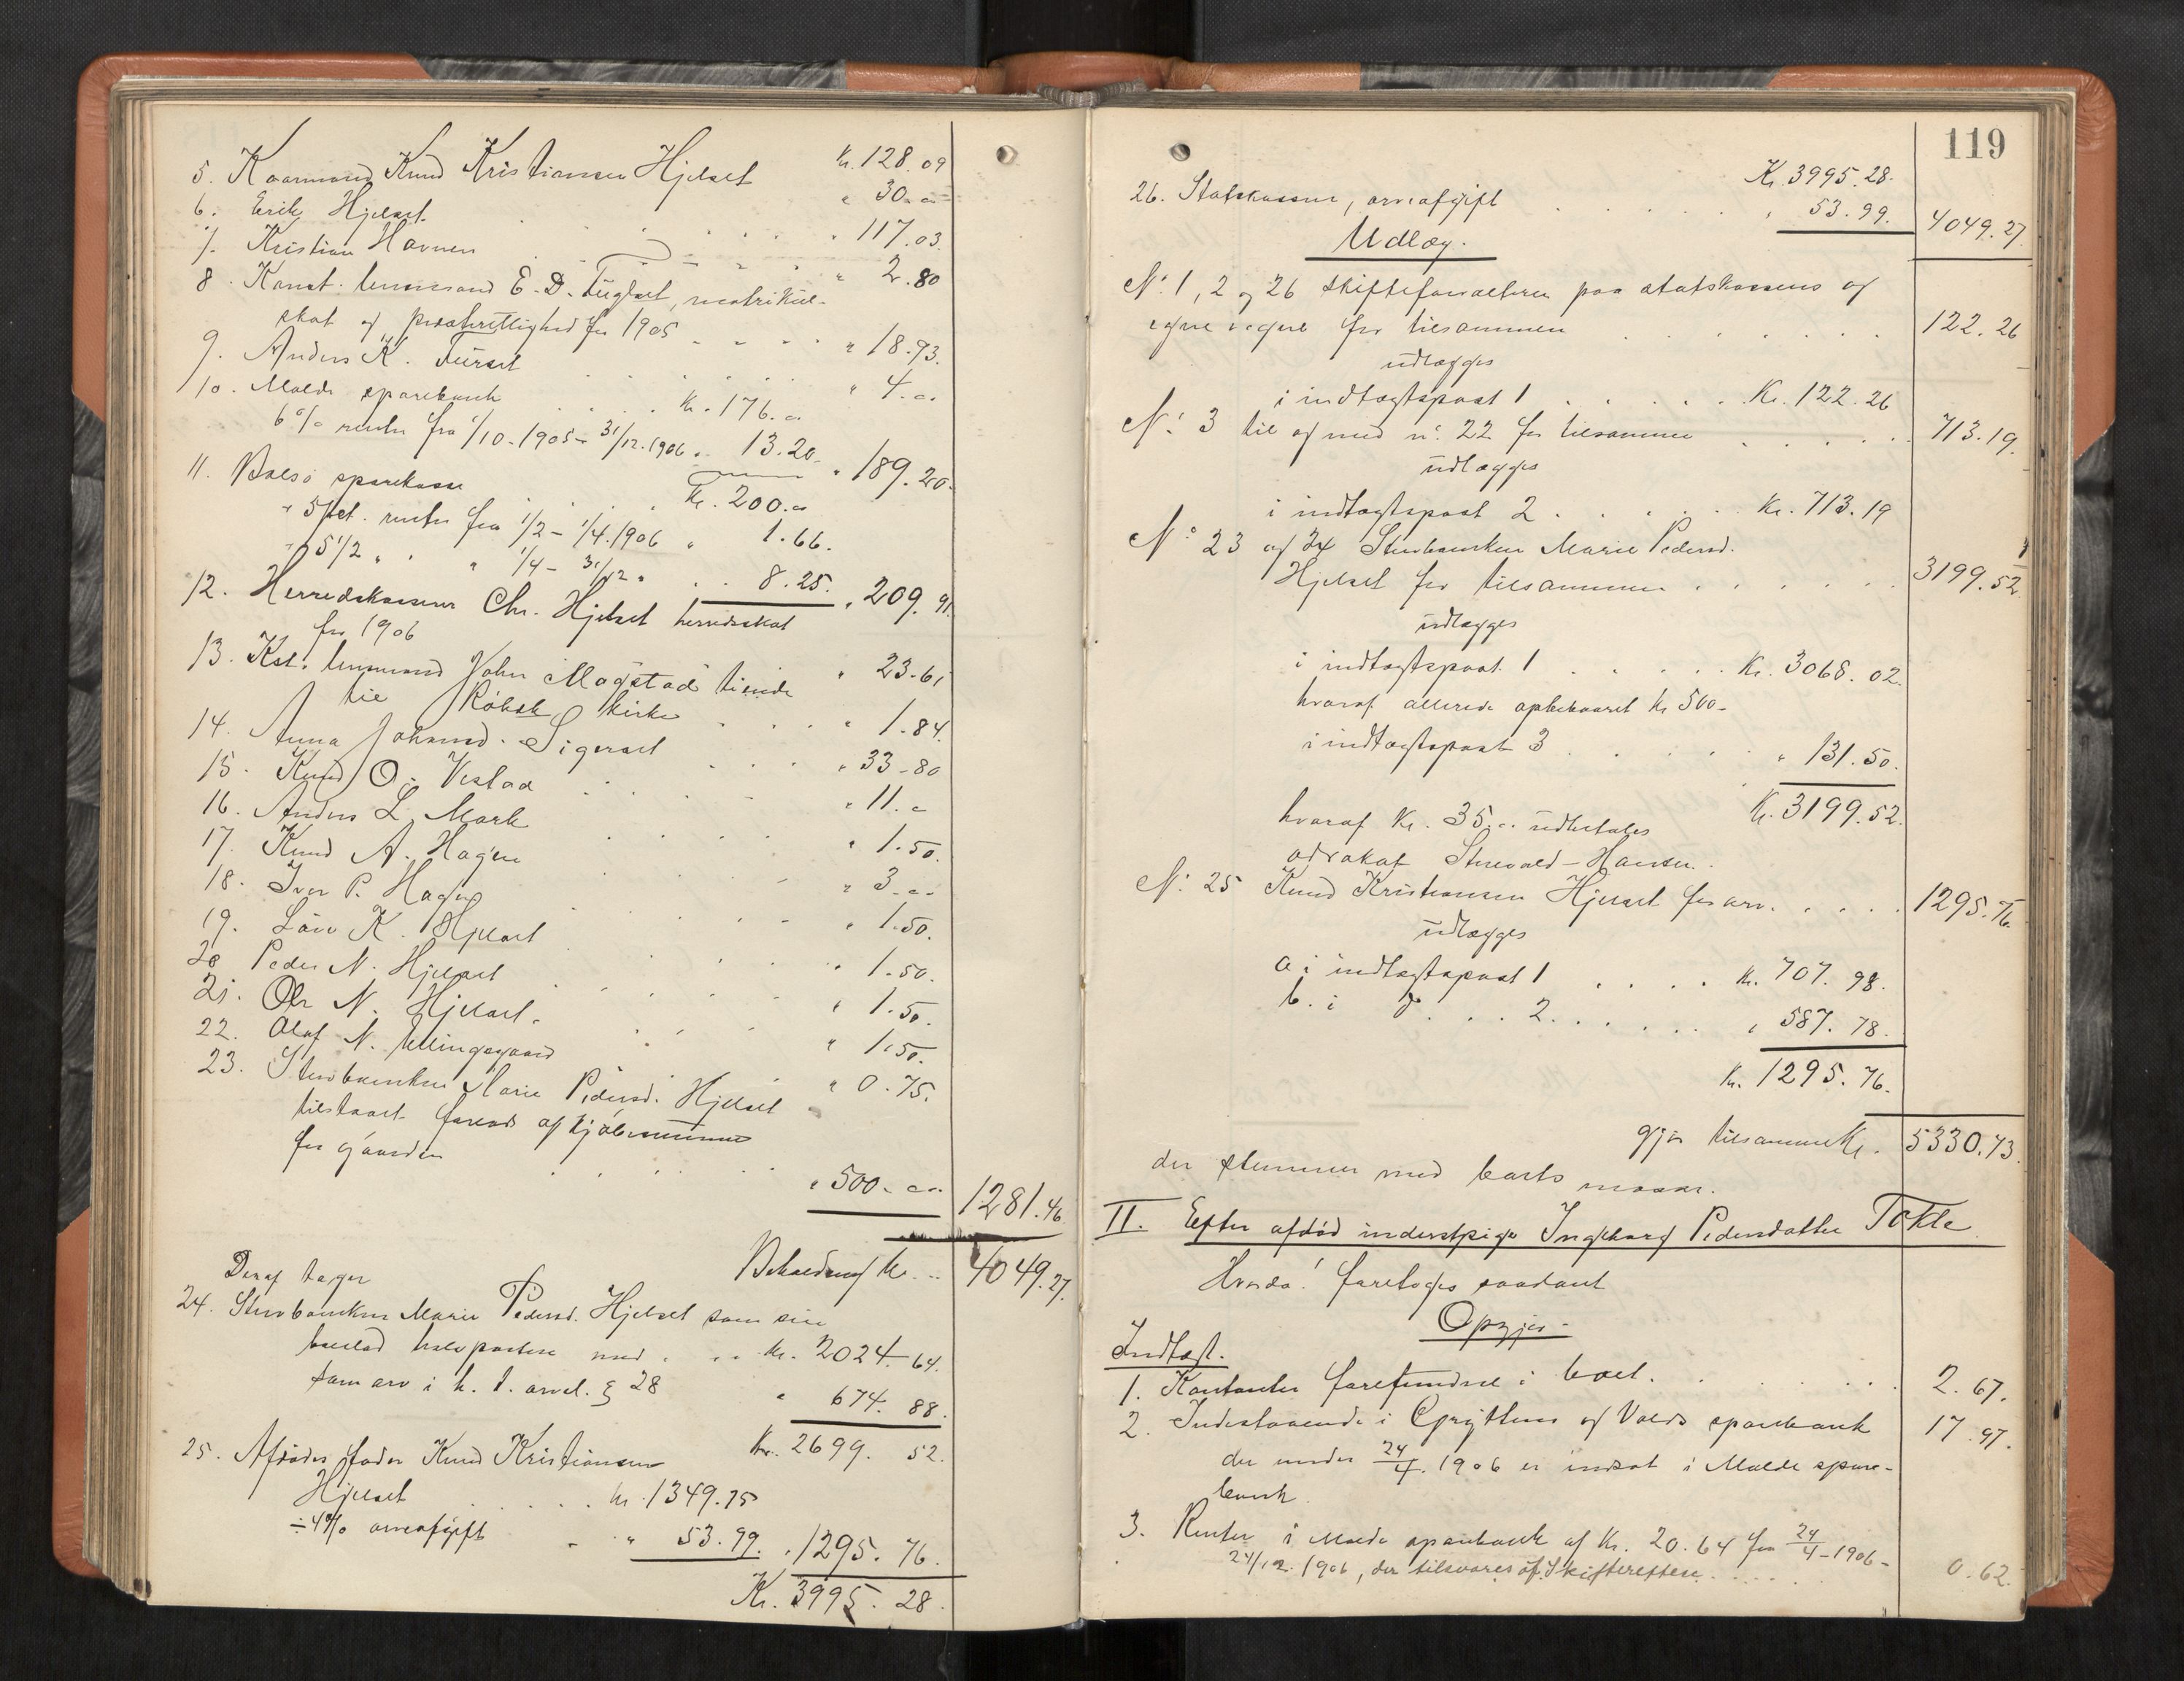 Kr. 128.09
5. Kaarmand Knud Kristiansen Hjelset
6. Erik Hjelset " 30.-
7. Kristian Havnen " 117.03.
8. Konst. lensmand E. D. Fuglset, matrikul- " 2.80
skat og for 1905 " 18.93.
9. Anders K. Furset " 4.-
10. Molde sparebank Kr. 176.-
6% renter fra 1/10-1905 - 31/12.1906 " 13.20 " 189.20.
11. Bolsø sparekasse Kr. 200.-
" 5 pct. renter fra 1/2 - 1/4.1906 " 1.66.
" 5 1/2 " " " 1/4 - 31/12 " 8.25. " 209.91.
12. Herredskasserer Chr. Hjelset herredsskat
for 1906 " 23.61
13. Kst. lensmand John Magstad tiende
til Røbek kirke " 1.84.
14. Anna Johansd. Sigerset " 33.80
15. Knud O. Vestad " 11.-
16. Anders L. Mork " 1.50.
17. Knud A. Hagen " 3.-
18. Iver P. Hagen " 1.50.
19. Lars K. Hjelset " 1.50.
20. Peder N. Hjelset " 1.50.
21. Ole N. Hjelset. " 1.50.
22. Olaf N. Ellingsgaard " 0.75.
23. Stervboenken Marie Pedersd. Hjelset
tilstaaet forlods af kjøbesummen
for gaarden " 500.- 1281.46
Beholdning Kr. 4049.27.
Deraf tager
24. Stervboenken Marie Pedersd. Hjelset som sin
boeslod halvparten med Kr. 2024.64.
som arv i h. t. arvel. § 28 " 674.88.
Kr. 2699.52.
25. Afdødes fader Knud Kristiansen
Hjelset Kr. 1349.75
÷ 4% arveafgift " 53.99. " 1295.76.
Kr. 3995.28.
119
Kr. 3995.28.
26. Statskassen, arveafgift " 53.99. 4049.27.
Udlæg.
N: 1, 2 og 26 skifteforvalteren paa statskassens og
egne vegne for tilsammen 122.26
udlægges
i indtægtspost 1 Kr. 122.26
N: 3 til og med n: 22 for tilsammen 713.19.
udlægges
i indtægtspost 2 Kr. 713.19
N: 23 og 24 Stervboenken Marie Pedersd.
Hjelset for tilsammen 3199.52
udlægges
i indtægtspost 1 Kr. 3068.02.
hvoraf allerede oppebaaret Kr 500-
i indtægtspost 3 " 131.50.
Kr. 3199.52.
hvoraf Kr. 35.- udbetales
advokat Stenvold-Hansen.
N: 25 Knud Kristiansen Hjelset for arv. 1295.76.
udlægges
a. i indtægtspost 1 Kr. 707.98.
b. i do 2. " 587.78.
Kr. 1295.76.
gjør tilsammen Kr. 5330.73.
der stemmer med boets masse.
II. Efter afdød inderstpige Ingeborg Pedersdatter Tokle.
Hvorda! foretoges saadant
Opgjør-
Indtægt.
1. Kontanter forefundne i boet. 2.67.
2. Indestaaende i Grytten og Volds sparebank 17.97.
der under 24/4. 1906 er indsat i Molde spare-
bank.
3. Renter i Molde sparebank af Kr. 20.64 fra 24/4-1906-
24/12. 1906, der tilsvares af Skifteretten. 0.62.